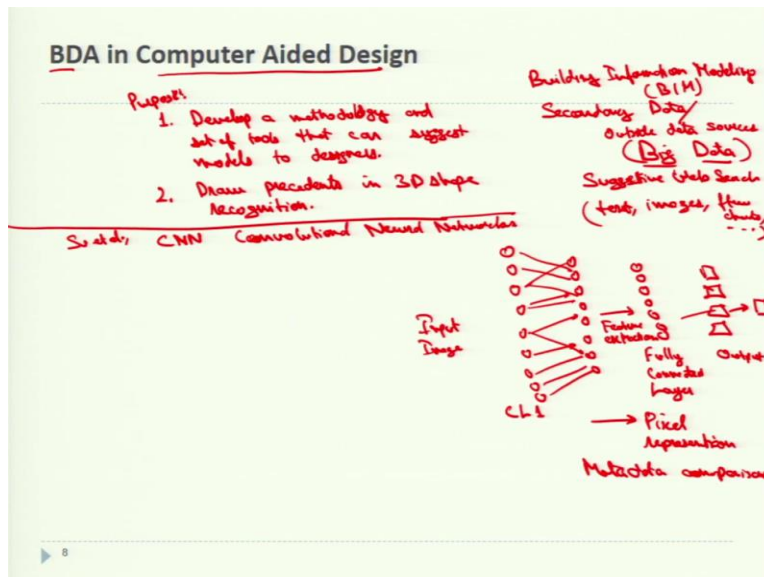 BDA in Computer Aided Design
Purpose:
1. Develop a methodology and
set of tools that can suggest
models to designers.
2. Draw precedents in 3D shape
recognition.
Building Information Modeling
(BIM)
Secondary Data/
outside data sources
(Big Data)
Suggestive Web Search
(text, images, flow
charts,
....)
Su et al., CNN Convolutional Neural Networks
Input
Image
CL1
Feature
extraction
Fully
Connected
Layer
Output
→ Pixel
representation
Metadata comparison
8